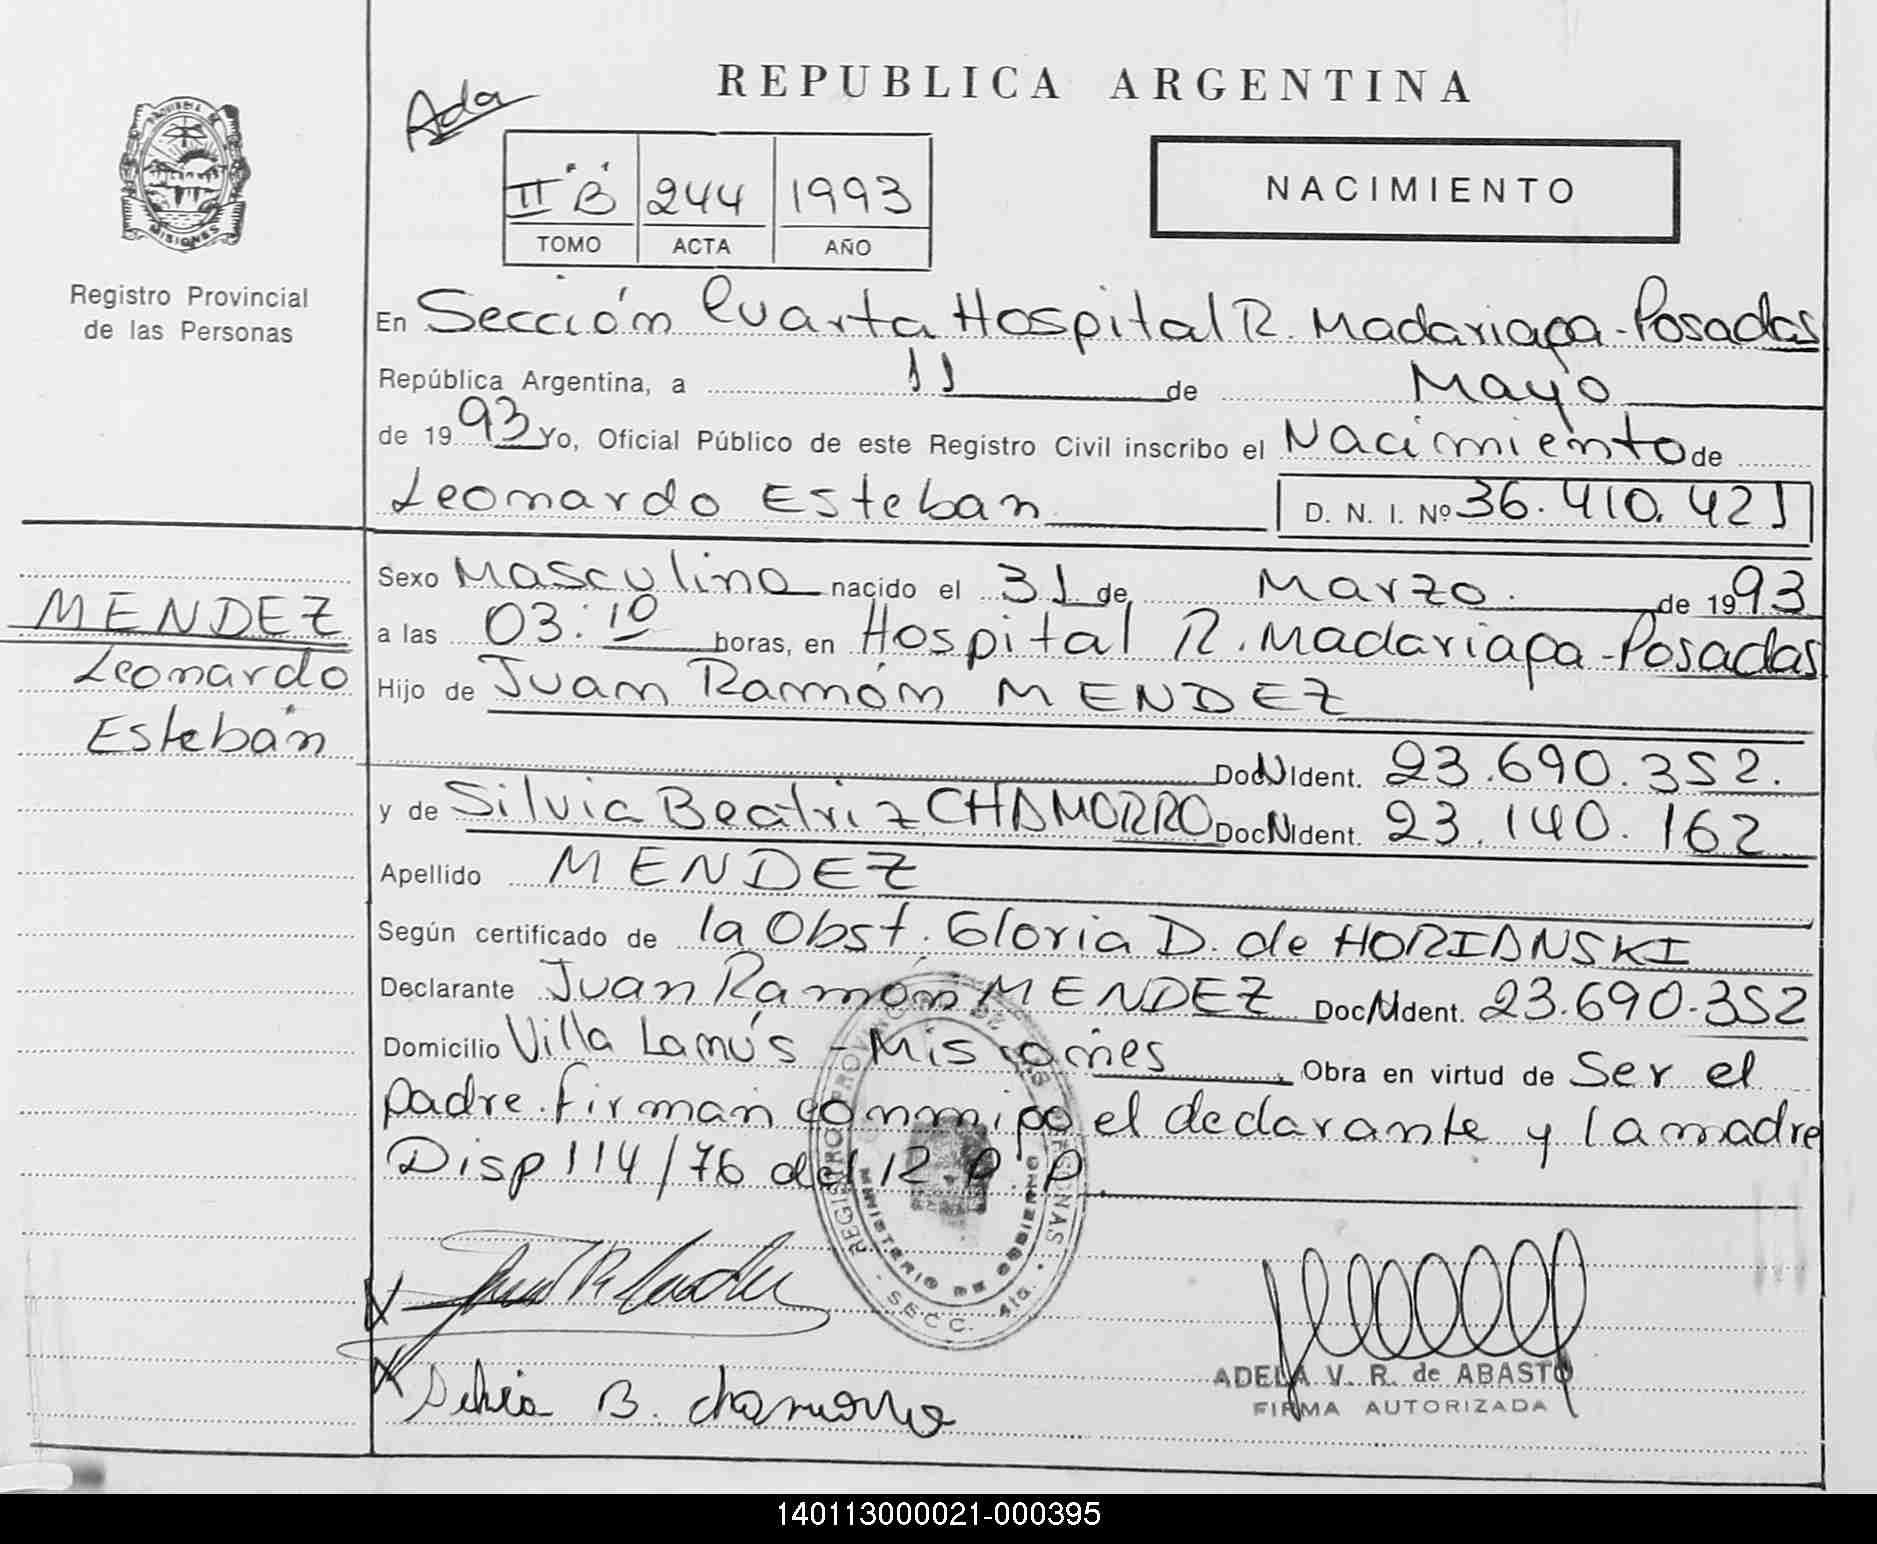 REPUBLICA ARGENTINA
Ada
II "B" 244 1993
TOMO ACTA AÑO
NACIMIENTO
PROVINCIA DE
MISIONES
Registro Provincial
de las Personas
En Sección Cuarta Hospital R. Madariaga - Posadas
República Argentina, a 11 de Mayo
de 1993 Yo, Oficial Público de este Registro Civil inscribo el Nacimiento de
Leonardo Esteban D. N. I. Nº 36.410.421
Sexo Masculino nacido el 31 de Marzo. de 1993
a las 03:10 horas, en Hospital R. Madariaga - Posadas
Hijo de Juan Ramón MENDEZ
Doc N Ident. 23.690.352.
y de Silvia Beatriz CHAMORRO Doc N Ident. 23.140.162
Apellido MENDEZ
Según certificado de la Obst. Gloria D. de HORIANSKI
Declarante Juan Ramón MENDEZ Doc N Ident. 23.690.352
Domicilio Villa Lanús - Misiones Obra en virtud de Ser el
padre. firman conmigo el declarante y la madre
Disp 114/76 del 12 P. P.
MENDEZ
Leonardo
Esteban
REGISTRO PROVINCIAL DE LAS PERSONAS
MINISTERIO DE GOBIERNO
SECC. 4ta.
Silvia B. Chamorro
ADELA V. R. de ABASTO
FIRMA AUTORIZADA
140113000021-000395